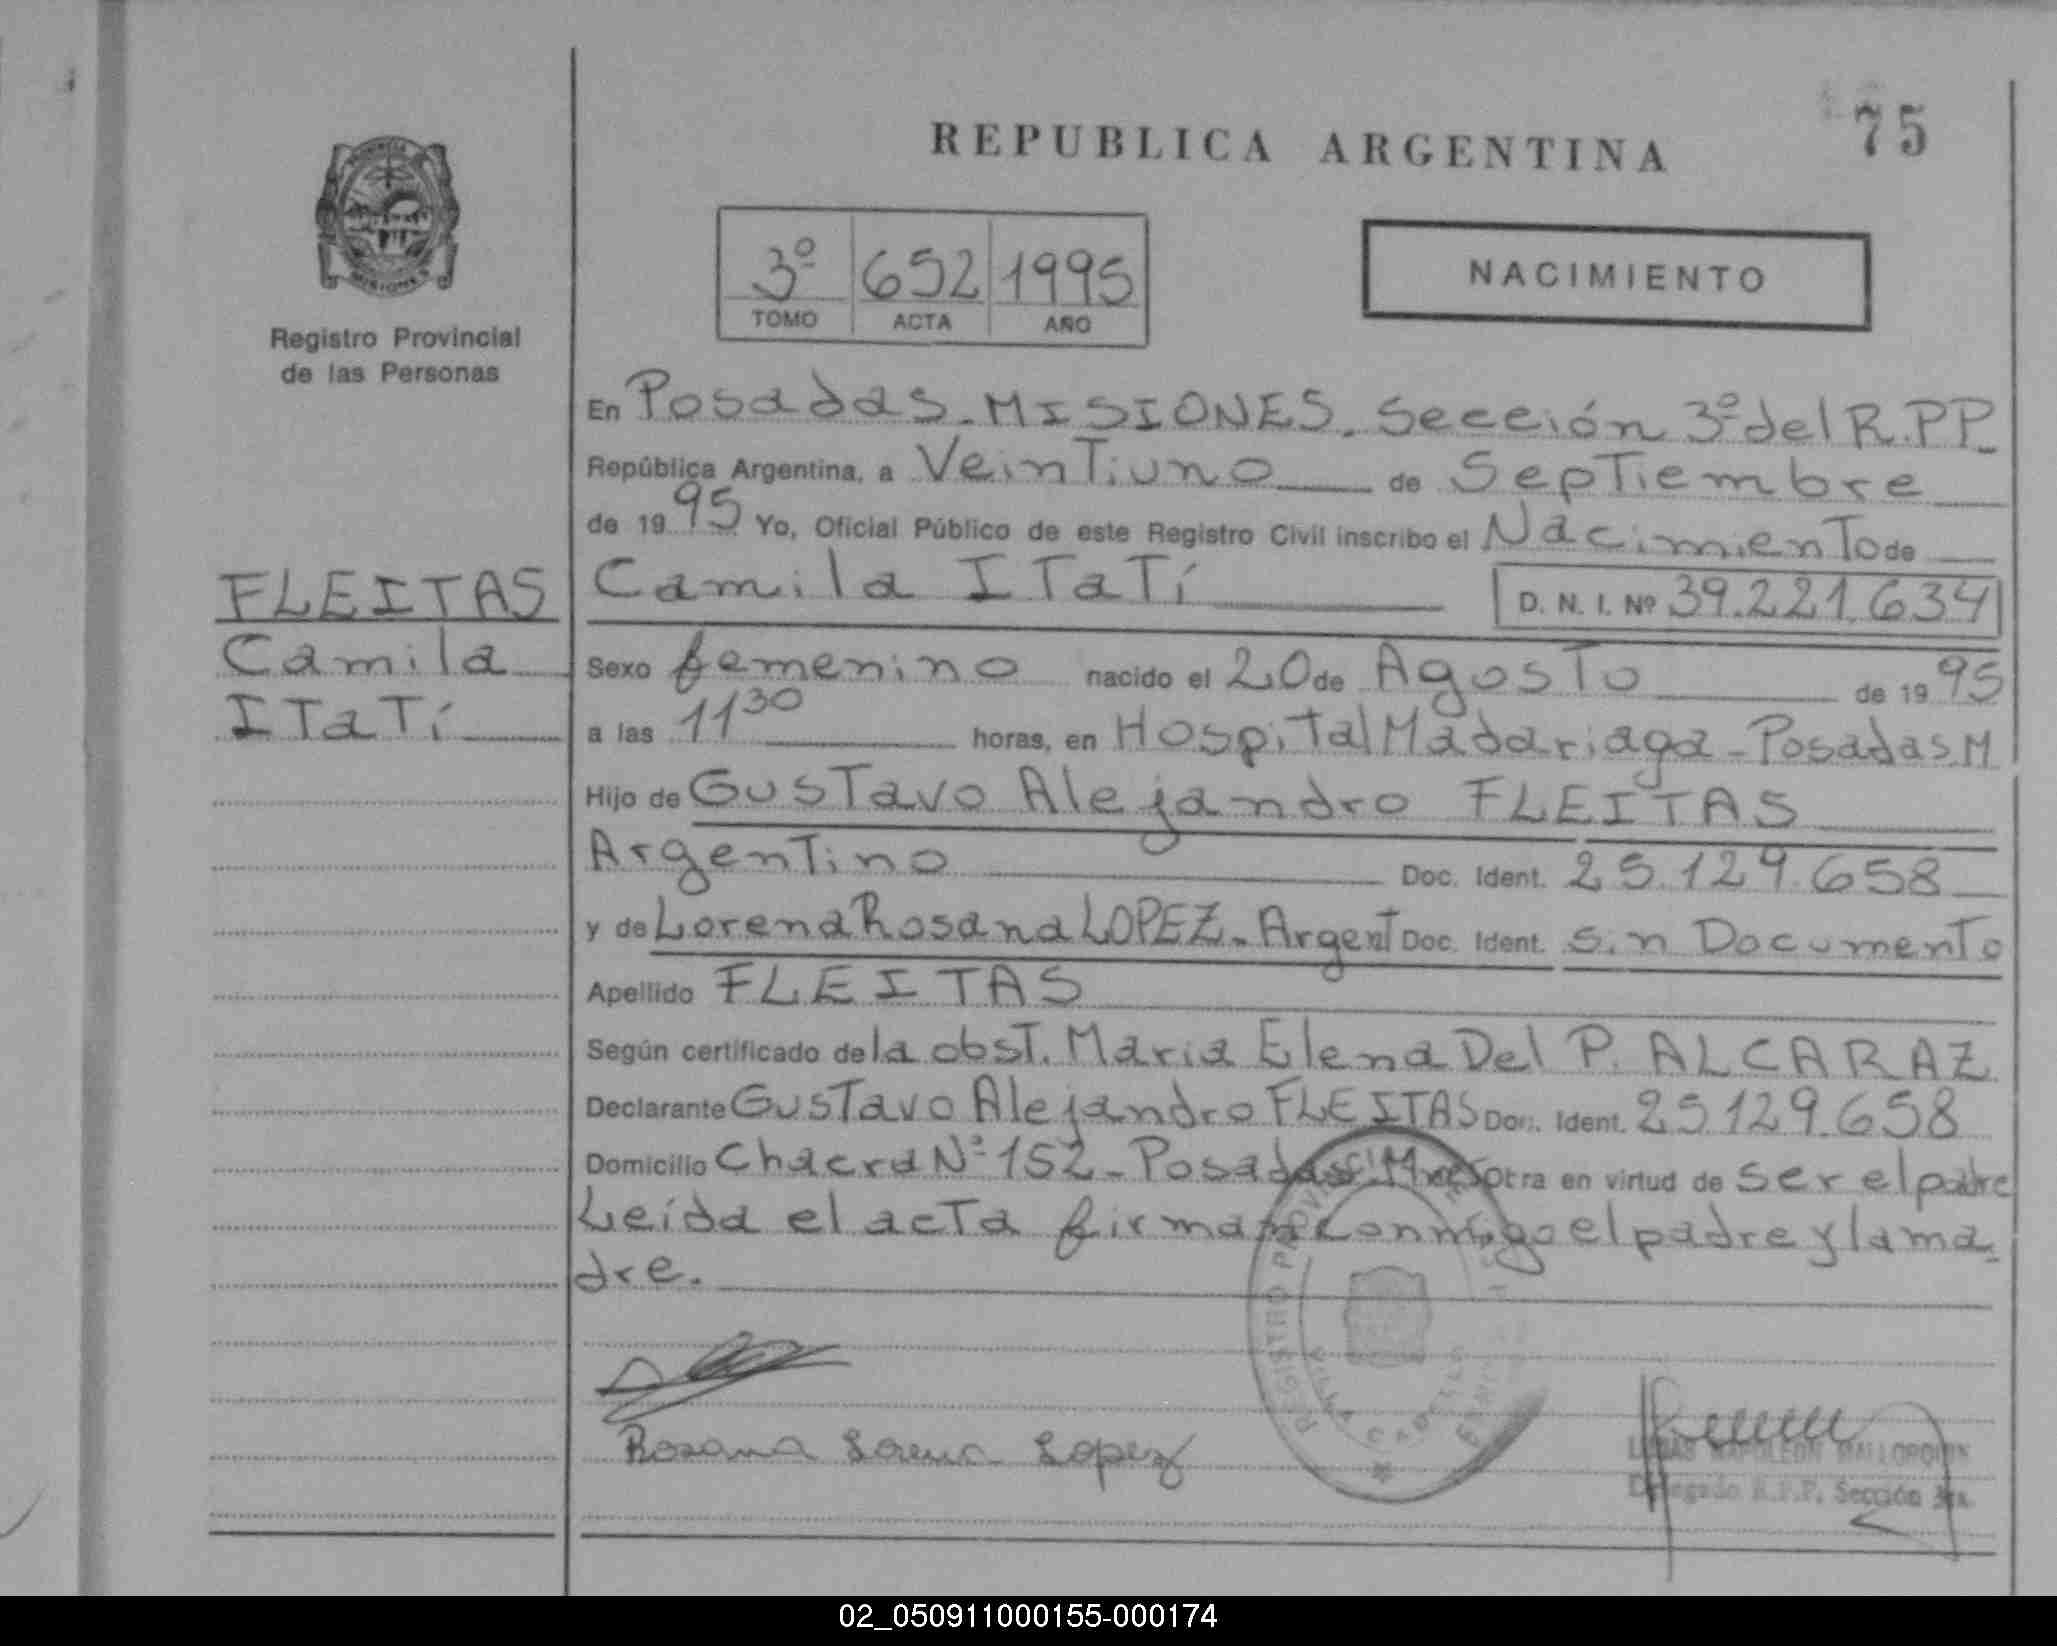 75
REPUBLICA ARGENTINA
3º 652 1995
TOMO ACTA AÑO
NACIMIENTO
PROVINCIA
MISIONES
Registro Provincial
de las Personas
En Posadas-MISIONES. Sección 3º del R.P.P.
República Argentina, a Veintiuno de Septiembre
de 1995 Yo, Oficial Público de este Registro Civil inscribo el Nacimiento de
Camila Itatí D. N. I. Nº 39.221.634
FLEITAS
Camila
Itatí
Sexo femenino nacido el 20 de Agosto de 1995
a las 11 30 horas, en Hospital Madariaga-Posadas.M
Hijo de Gustavo Alejandro FLEITAS
Argentino Doc. Ident. 25.129.658
y de Lorena Rosana LOPEZ-Argent Doc. Ident. sin Documento
Apellido FLEITAS
Según certificado de la obst. Maria Elena Del P. ALCARAZ
Declarante Gustavo Alejandro FLEITAS Doc. Ident. 25.129.658
Domicilio Chacra Nº 152-Posadas obra en virtud de ser el padre
Leída el acta firman conmigo el padre y la ma-
dre.
REGISTRO PROVINCIAL
VILLA CABELLO
Rosana Lorena Lopez
NAPOLEON MALLORQUIN
Delegado R.P.P. Sección 3ra.
02_050911000155-000174